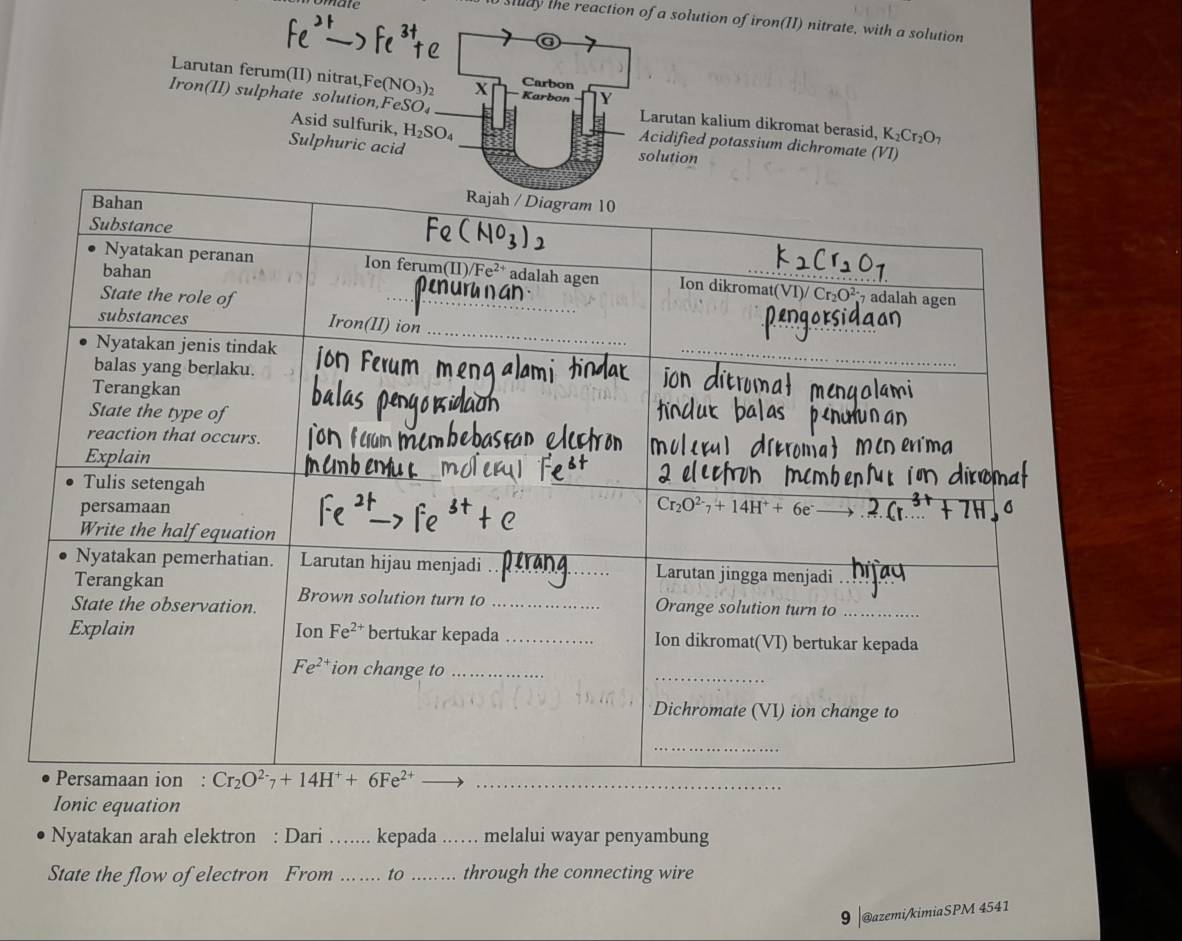 study the reaction of a solution of iron(II) nitrate, with a solution
Fe²⁺ → Fe³⁺ + e
G
Larutan ferum(II) nitrat,Fe(NO₃)₂
Iron(II) sulphate solution,FeSO₄
X
Carbon
Karbon
Y
Asid sulfurik, H₂SO₄
Sulphuric acid
Larutan kalium dikromat berasid, K₂Cr₂O₇
Acidified potassium dichromate (VI)
solution
Rajah / Diagram 10
Bahan
Substance
Fe(NO₃)₂
K₂Cr₂O₇
• Nyatakan peranan
bahan
State the role of
substances
Ion ferum(II)/Fe²⁺ adalah agen
penurunan.
Iron(II) ion ........................
Ion dikromat(VI)/ Cr₂O²⁻₇ adalah agen
pengorsidaan
• Nyatakan jenis tindak
balas yang berlaku.
Terangkan
State the type of
reaction that occurs.
Explain
ion Ferum mengalami tindak
balas pengoksidaan
ion ferum membebaskan electron
membentuk molekul Fe³⁺
ion dikromat mengalami
tinduk balas penurunan
molekul dikromat menerima
2 electron membentuk ion dikromat
• Tulis setengah
persamaan
Write the half equation
Fe²⁺ → Fe³⁺ + e
Cr₂O²⁻₇ + 14H⁺ + 6e⁻ → 2Cr³⁺ + 7H₂O
• Nyatakan pemerhatian.
Terangkan
State the observation.
Explain
Larutan hijau menjadi perang
Brown solution turn to ..................
Ion Fe²⁺ bertukar kepada ..............
Fe²⁺ion change to ...............
Larutan jingga menjadi hijau
Orange solution turn to ..............
Ion dikromat(VI) bertukar kepada
..................
Dichromate (VI) ion change to
..................
• Persamaan ion : Cr₂O²⁻₇ + 14H⁺ + 6Fe²⁺ → ..............................................
Ionic equation
• Nyatakan arah elektron : Dari ....... kepada ...... melalui wayar penyambung
State the flow of electron From ....... to ........ through the connecting wire
9 |@azemi/kimiaSPM 4541